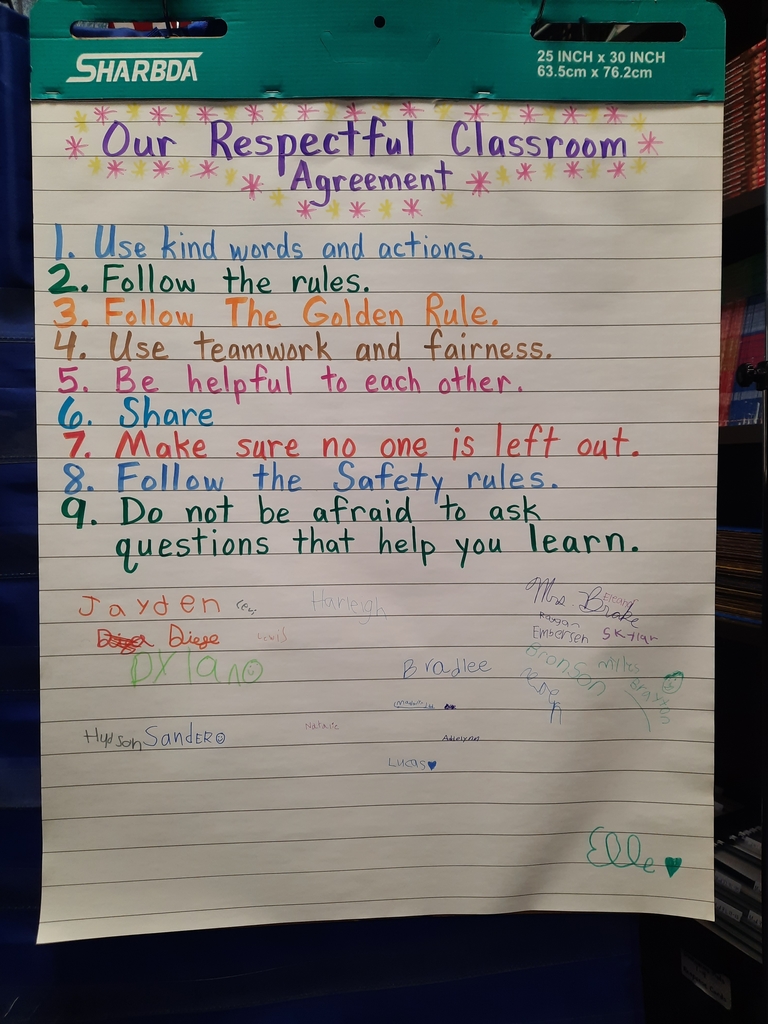 SHARBDA
25 INCH x 30 INCH
63.5cm x 76.2cm
Our Respectful Classroom
Agreement
1. Use kind words and actions.
2. Follow the rules.
3. Follow The Golden Rule.
4. Use teamwork and fairness.
5. Be helpful to each other.
6. Share
7. Make sure no one is left out.
8. Follow the Safety rules.
9. Do not be afraid to ask
questions that help you learn.
Jayden Harleigh Mrs. Brake Eleanor
Raygan
Diego Lewis Embersen Skylar
Dylan Bradlee Bronson Myles
Braxton
Hudson Sander Natalie
Adrelynn
Lucas
Elle